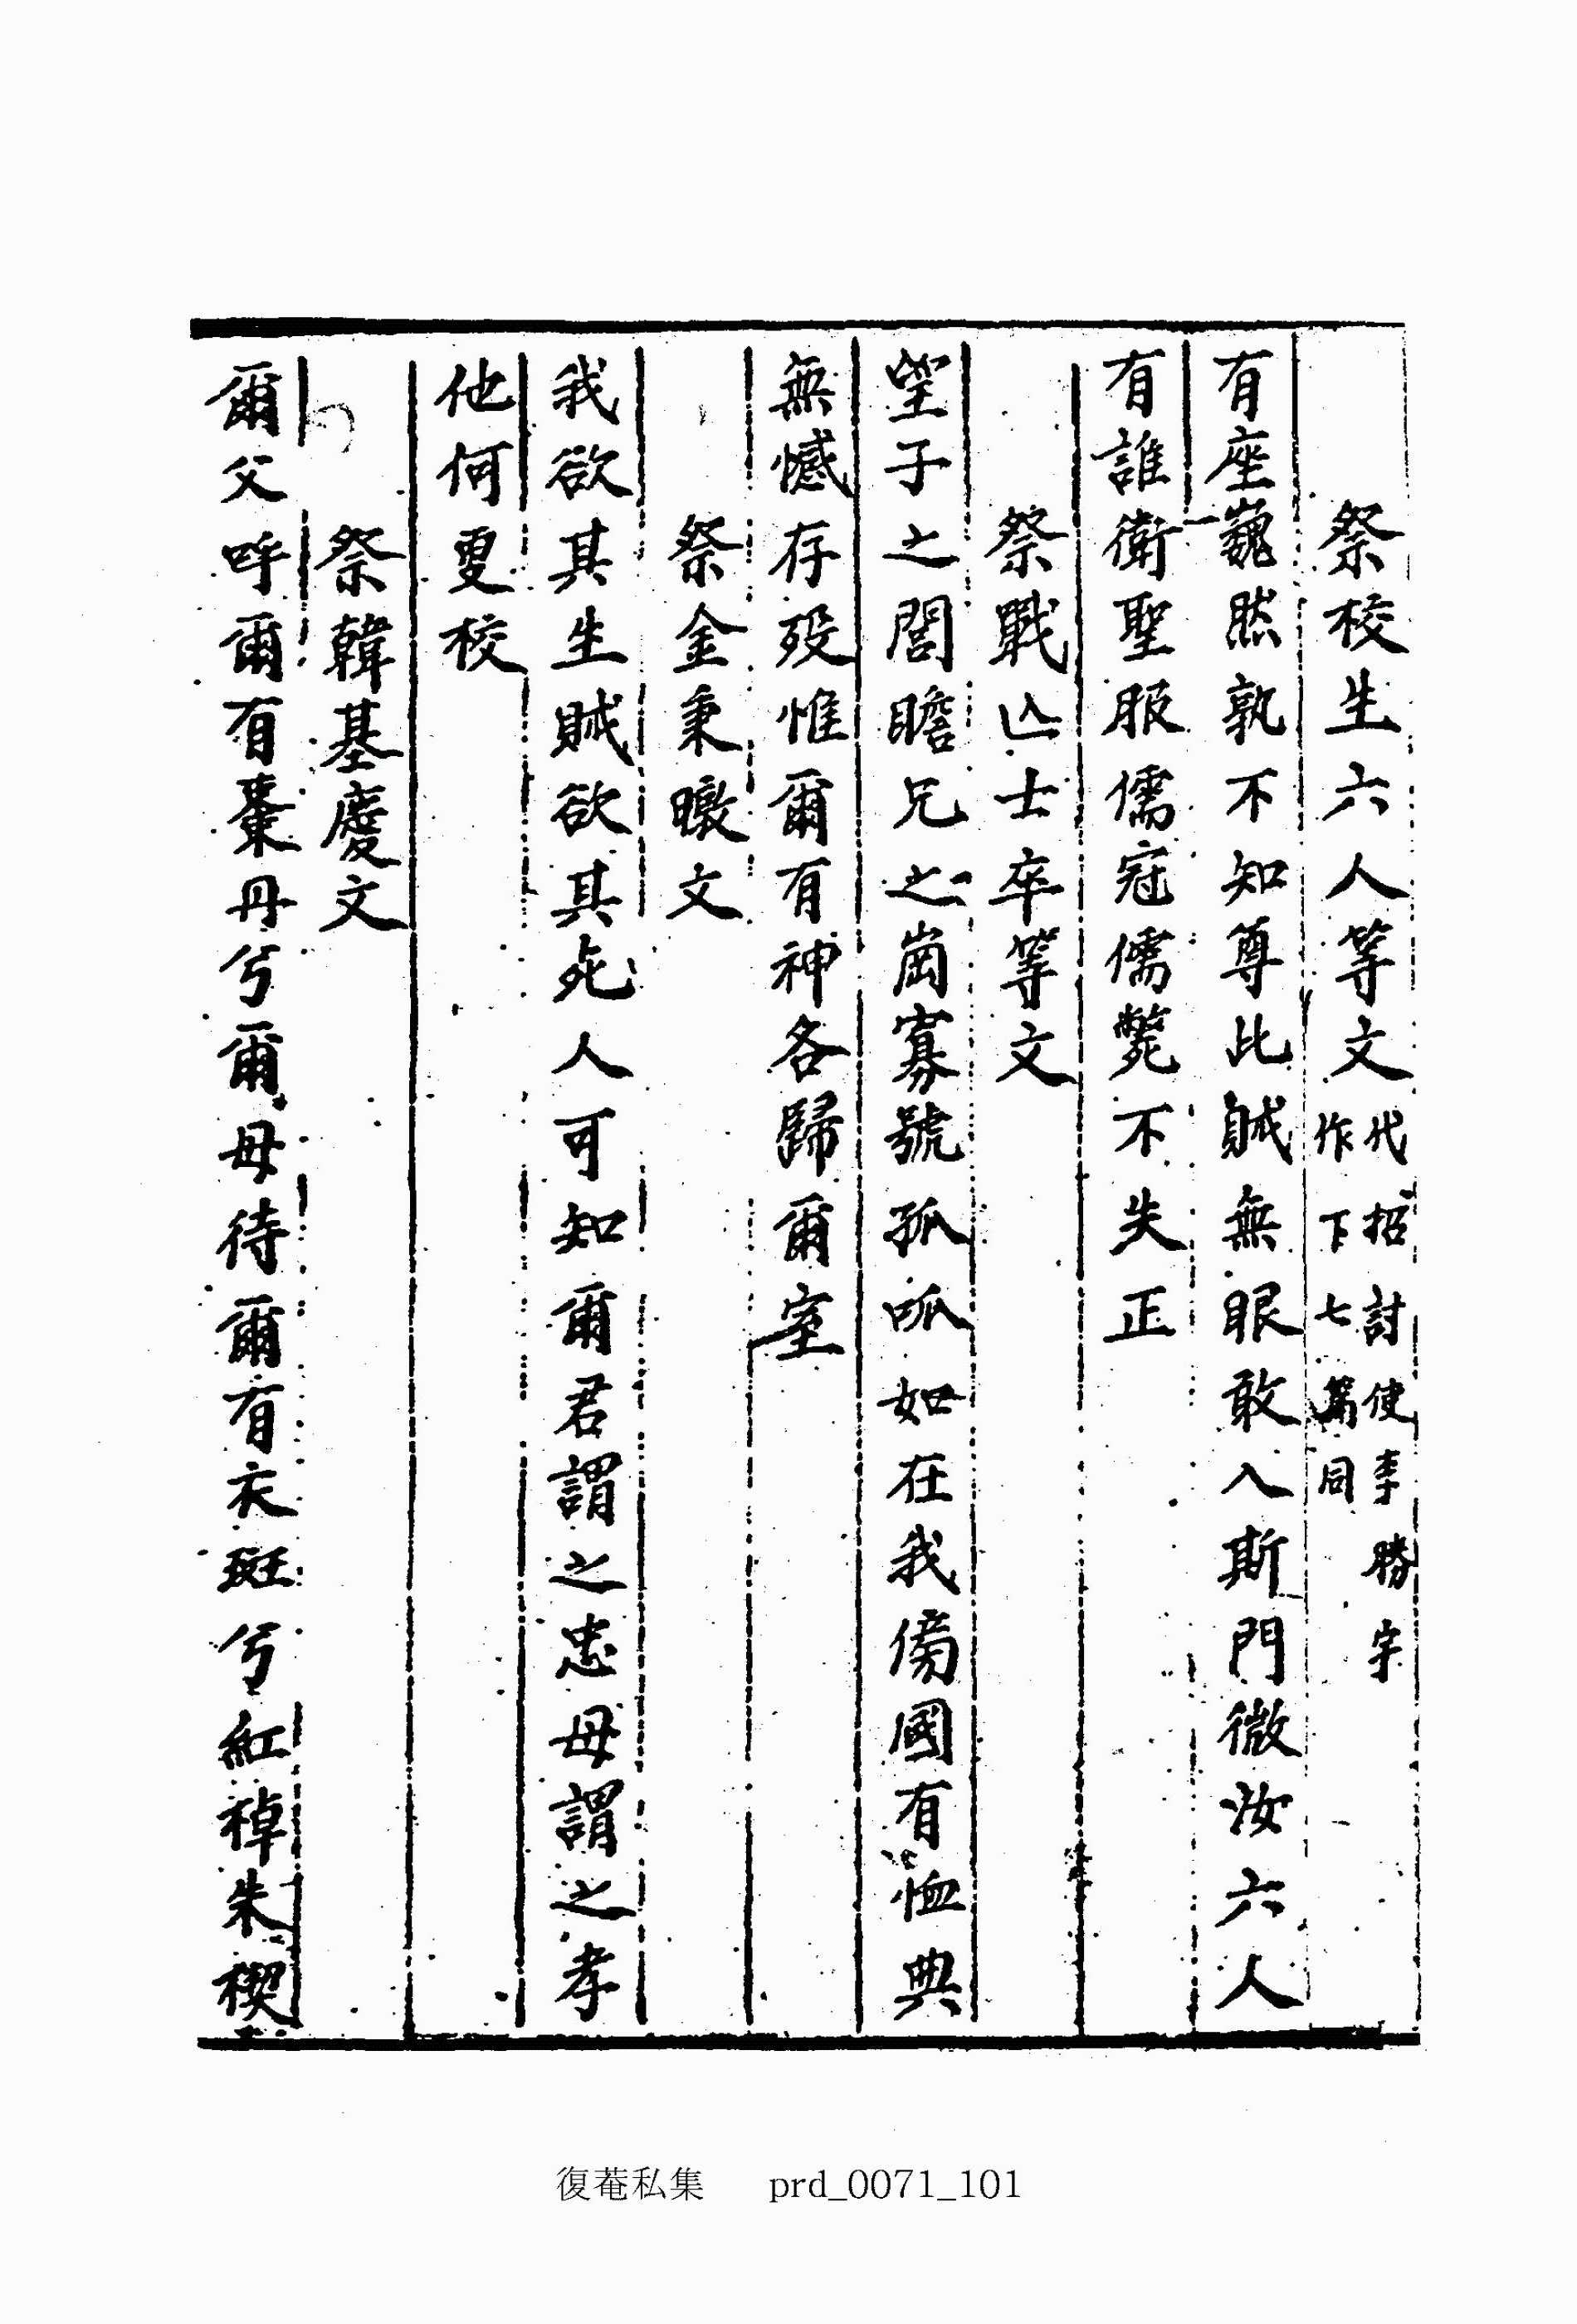 祭校生六人等文代招討使李勝宇作下七篇同
有座巍然孰不知尊此賊無眼敢入斯門微汝六人
有誰衛聖服儒冠儒斃不失正
祭戰亾士卒等文
望子之閭瞻兄之崗寡號孤呱如在我傷國有恤典
無憾存歿惟爾有神各歸爾室
祭金秉暾文
我欲其生賊欲其死人可知爾君謂之忠母謂之孝
他何更校
祭韓基慶文
爾父呼爾有棗丹兮爾母待爾有衣斑兮紅棹朱楔
復菴私集 prd_0071_101